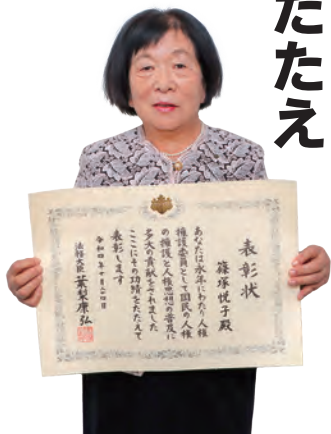 たたえ
表彰状
篠塚悦子殿
あなたは永年にわたり人権
擁護委員として国民の人権
の擁護と人権思想の普及に
多大の貢献をされました
ここにその功績をたたえて
表彰します
令和四年十月二十四日
法務大臣 葉梨康弘